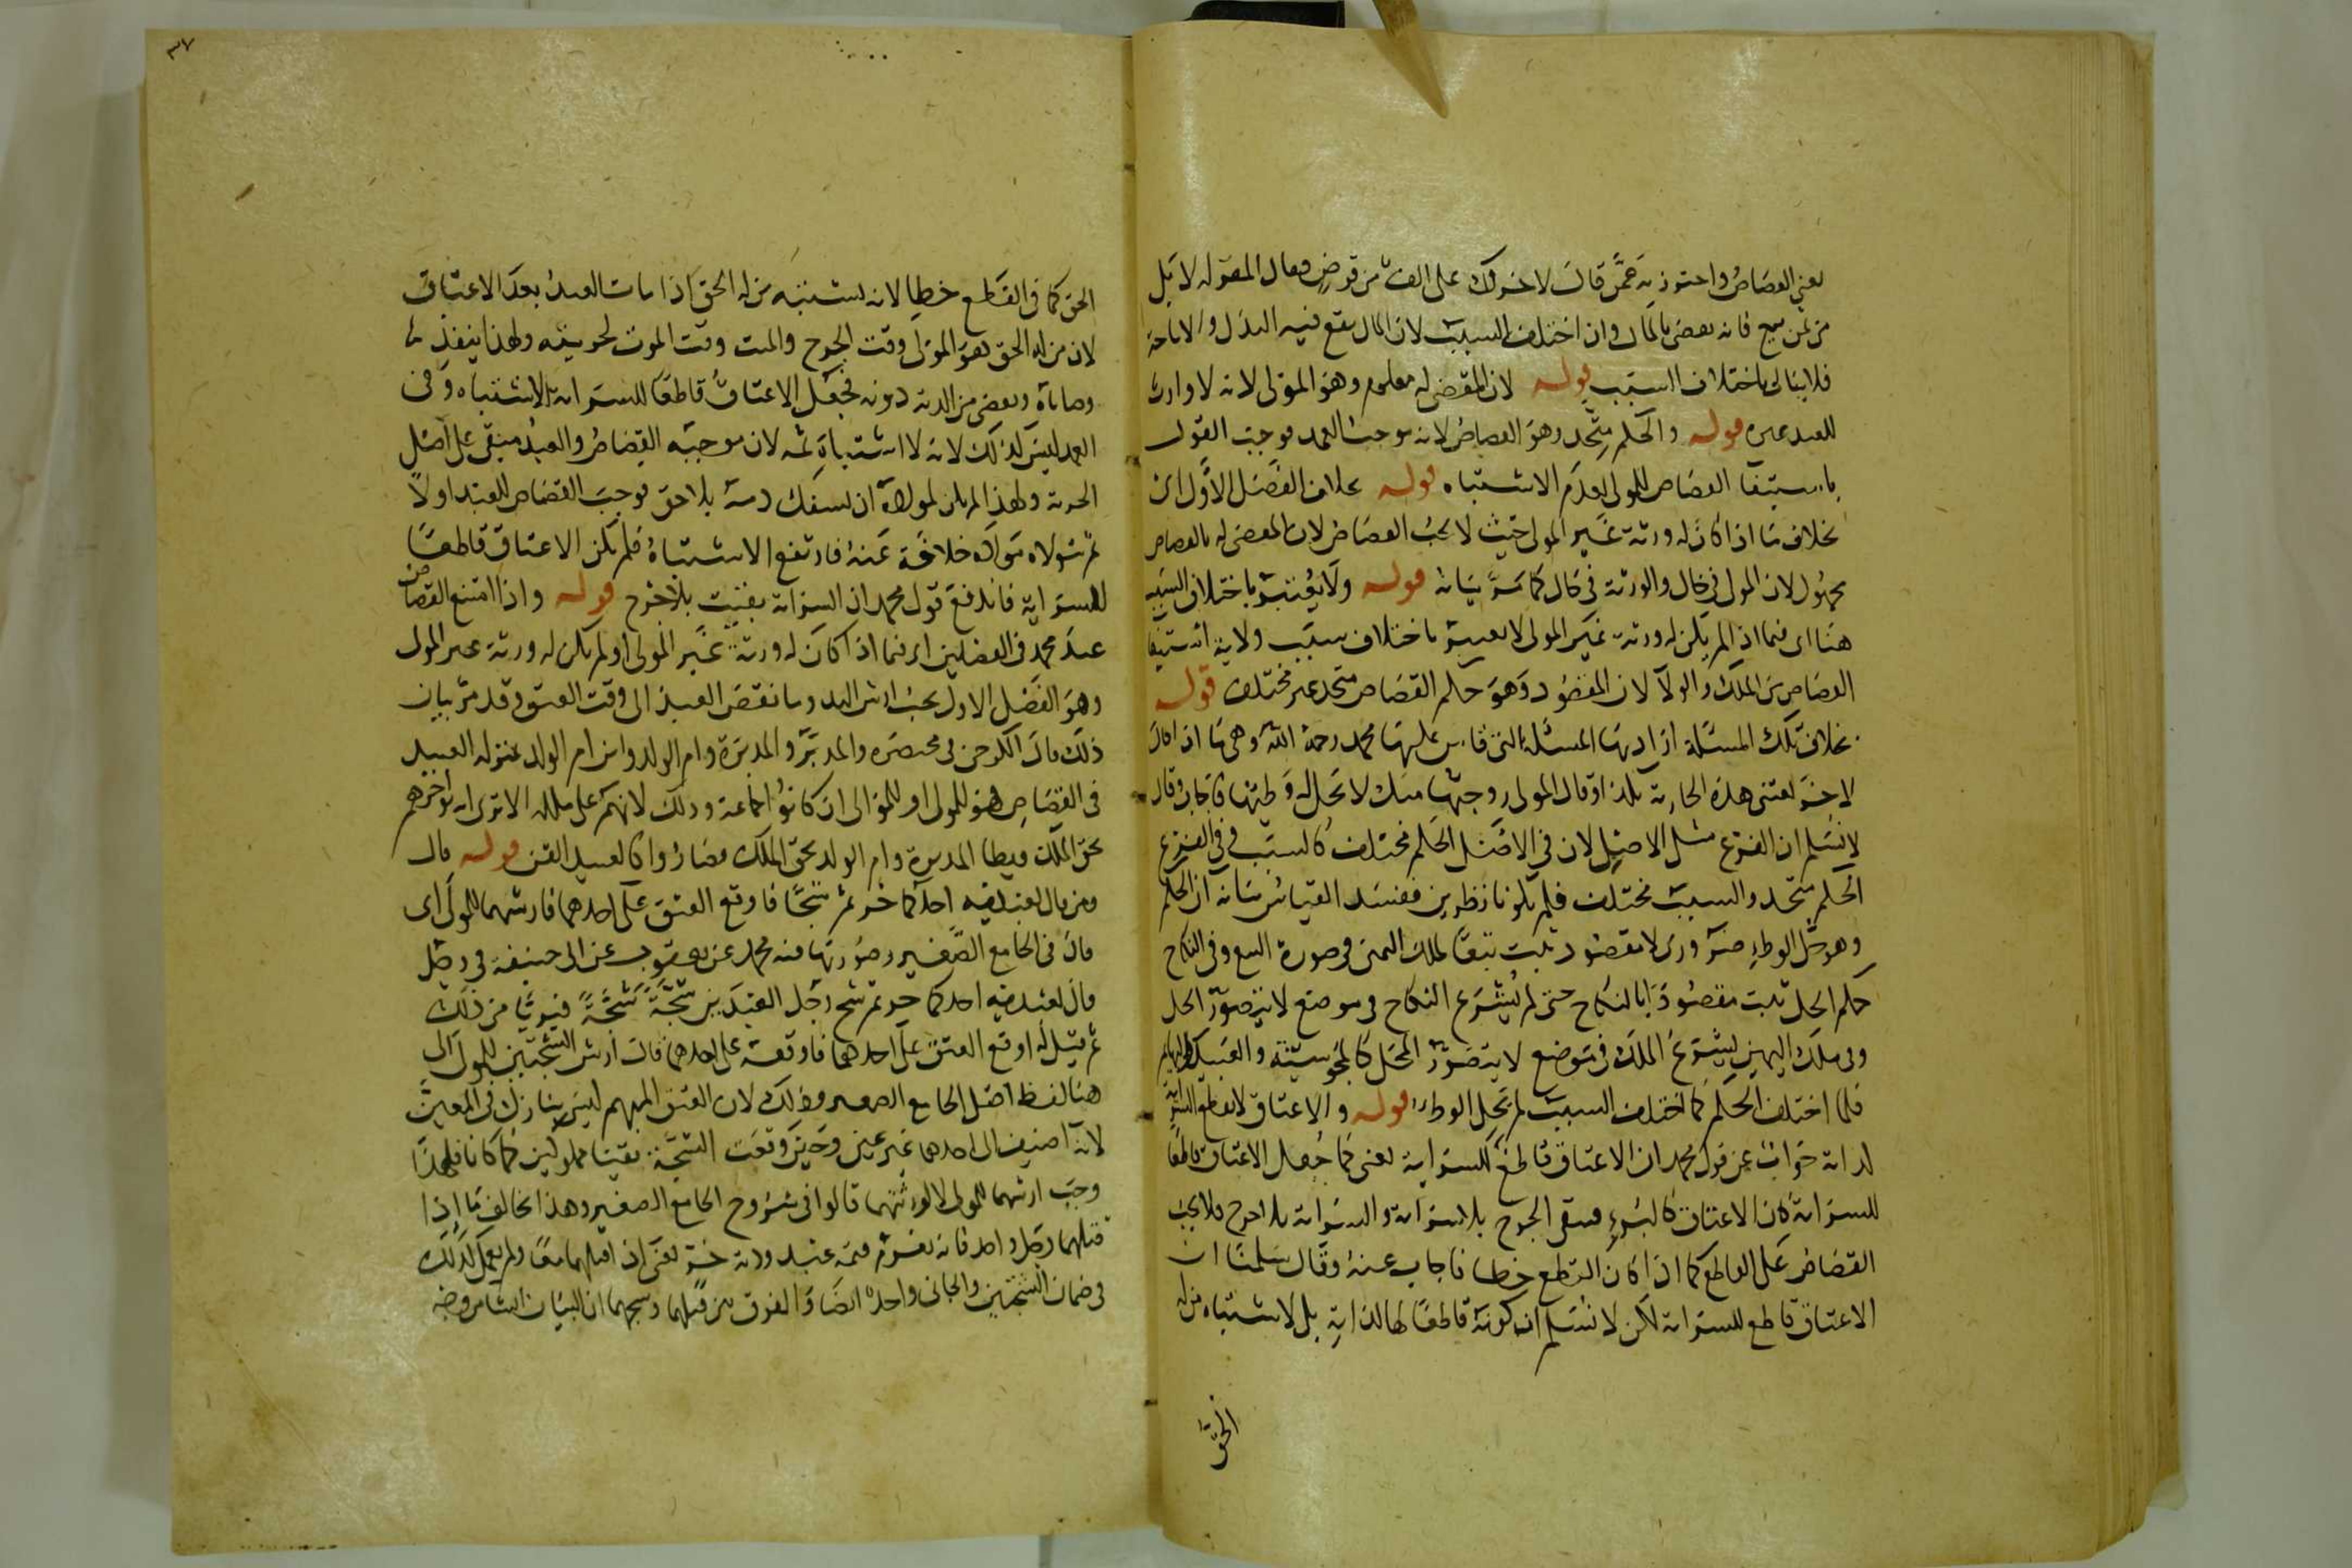 يعني القصاص واحترز به عمن قال لاخر لك على الف من قرض وقال المقر له لا بل
من ثمن مبيع فانه يقضى بالمال وان اختلف السبب لان المال يقع فيه البدل والاباحة
فلا يبالى باختلاف السبب قوله لان المقضى له معلوم وهو المولى لانه لا وارث
للعبد غيره قوله والحكم متحد وهو القصاص لانه موجب العمد فوجب القول
باستيفا القصاص للمولى لعدم الاشتباه قوله بخلاف الفصل الاول اى
بخلاف ما اذا كان له ورثة غير المولى حيث لا يجب القصاص لان المقضى له بالقصاص
مجهول لان المولى في حال والورثة في حال كما مر بيانه قوله ولا يعتبر باختلاف السبب
هنا اى فيما اذا لم يكن له ورثة غير المولى لا يعتبر باختلاف سبب ولاية استيفا
القصاص من الملك والولا لان المقصود وهو حكم القصاص متحد غير مختلف قوله
بخلاف تلك المسئلة اراد بها المسئلة التي قاس عليها محمد رحمه الله وهي ما اذا قال
لاخر بعتنى هذه الجارية بكذا وقال المولى زوجتها منك لا يحل له وطيها فاجاب وقال
لا نسلم ان الفرع مثل الاصل لان في الاصل الحكم مختلف كالسبب وفي الفرع
الحكم متحد والسبب مختلف فلم يكونا نظيرين ففسد القياس بيانه ان الحكم
وهو حل الوطء ضرورى لا مقصود يثبت تبعا لملك اليمين في صورة البيع وفي النكاح
حكم الحل يثبت مقصودا بالنكاح حتى لم يشرع النكاح في موضع لا يتصور الحل
وفي ملك اليمين يشرع الملك في موضع لا يتصور الحل كالمجوسية والعبيد والبهايم
فلما اختلف الحكم كما اختلف السبب لم يحل الوطء قوله والاعتاق لا يقطع السراية
لذاته جواب عن قول محمد ان الاعتاق قاطع للسراية يعنى لما جعل الاعتاق قاطعا
للسراية كان الاعتاق كالبرء فيبقى الجرح بلا سراية والسراية بلا جرح فلا يجب
القصاص على القاطع كما اذا كان القطع خطا فاجاب عنه وقال سلمنا ان
الاعتاق قاطع للسراية لكن لا نسلم ان كونه قاطعا لها لذاته بل لاشتباه من له
الحق
٣٧
الحق كما في القاطع خطا لانه يشتبه من له الحق اذا مات العبد بعد الاعتاق
لان من له الحق هو المولى وقت الجرح والميت وقت الموت لحريته ولهذا ينفذ
وصاياه ويقضى من الدية ديونه فجعل الاعتاق قاطعا للسراية للاشتباه وفي
العمد ليس كذلك لانه لا اشتباه ثمه لان موجبه القصاص والعبد مبقى على اصل
الحرية ولهذا لم يكن لمولاه ان يسفك دمه بلا حق فوجب القصاص للعبد اولا
ثم يتولاه مولاه خلافة عنه فارتفع الاشتباه فلم يكن الاعتاق قاطعا
للسراية فاندفع قول محمد ان السراية بقيت بلا جرح قوله واذا امتنع القصاص
عند محمد في الفصلين اى فيما اذا كان له ورثة غير المولى او لم يكن له ورثة غير المولى
وهو الفصل الاول يجب ارش اليد وما نقص العبد الى وقت العتق وقد مر بيان
ذلك قال الكرخى في مختصره والمدبر والمدبرة وام الولد وابن ام الولد بمنزلة العبيد
في القصاص هو للمولى او للموالى ان كانوا جماعة وذلك لانهم على ملكه الا ترى انه يواجرهم
بحق الملك ويطا المدبرة وام الولد بحق الملك فصاروا كالعبيد القن قوله قال
ومن قال لعبديه احدكما حر ثم شجا فاوقع العتق على احدهما فارشهما للمولى اى
قال في الجامع الصغير وصورتها فيه محمد عن يعقوب عن ابى حنيفة في رجل
قال لعبديه احدكما حر ثم شج رجل العبدين شجة شجة فبرئا من ذلك
ثم قيل له اوقع العتق على احدهما فاوقعه على احدهما قال ارش الشجتين للمولى الى
هنا لفظ اصل الجامع الصغير وذلك لان العتق المبهم ليس بنازل في المعين
لانه اضيف الى احدهما غير عين وحين وقعت الشجة بقيتا مملوكين كما كانا فلهذا
وجب ارشهما للمولى لا لورثتهما قالوا في شروح الجامع الصغير وهذا يخالف ما اذا
قتلهما رجل واحد فانه يغرم قيمة عبد ودية حر يعنى اذا قتلهما معا ولم يعمل كذلك
في ضمان الشجتين والجانى واحد ايضا والفرق بين قتلهما وشجهما ان البيان انشا من وجه